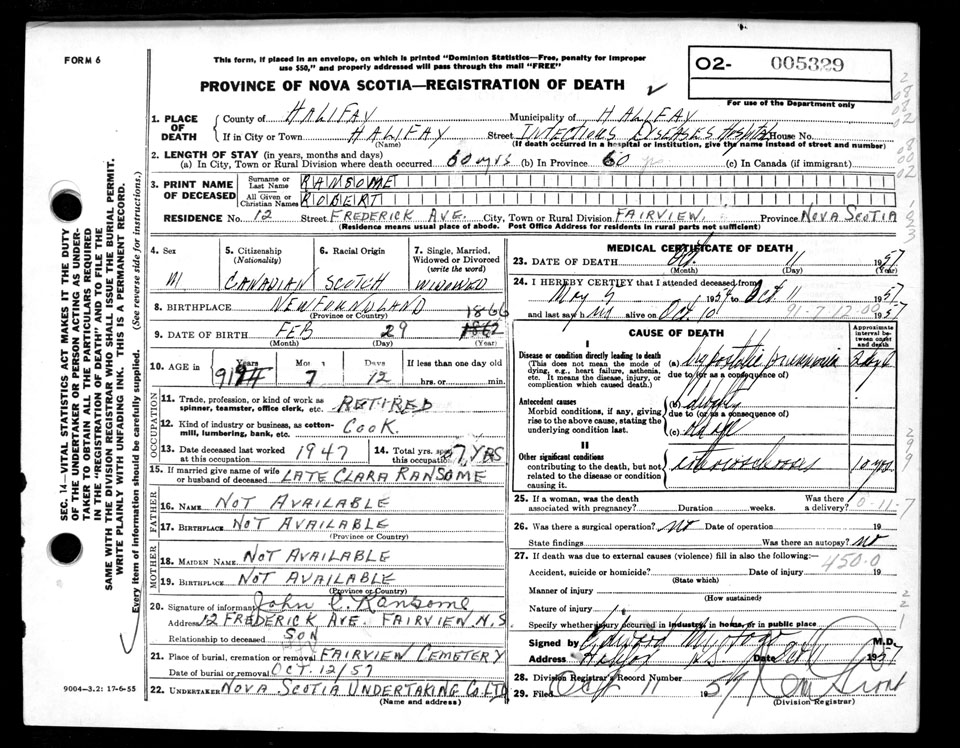 FORM 6
This form, if placed in an envelope, on which is printed "Dominion Statistics—Free, penalty for improper
use $50," and properly addressed will pass through the mail "FREE"
PROVINCE OF NOVA SCOTIA—REGISTRATION OF DEATH
O2- 005329
For use of the Department only
1. PLACE OF DEATH
County of HALIFAX Municipality of HALIFAX
If in City or Town HALIFAX Street INFECTIOUS DISEASES Hospital House No.
(Name) (If death occurred in a hospital or institution, give the name instead of street and number)
2. LENGTH OF STAY (in years, months and days)
(a) In City, Town or Rural Division where death occurred 60 yrs (b) In Province 60 (c) In Canada (if immigrant)
3. PRINT NAME OF DECEASED
Surname or Last Name RANSOME
All Given or Christian Names ROBERT
RESIDENCE No. 12 Street FREDERICK AVE. City, Town or Rural Division FAIRVIEW, Province NOVA SCOTIA
(Residence means usual place of abode. Post Office Address for residents in rural parts not sufficient)
4. Sex M
5. Citizenship (Nationality) CANADIAN
6. Racial Origin SCOTCH
7. Single, Married, Widowed or Divorced (write the word) WIDOWED
8. BIRTHPLACE NEWFOUNDLAND
(Province or Country)
1866
9. DATE OF BIRTH FEB 29 1862
(Month) (Day) (Year)
10. AGE in Years 91 94 Mos 7 Days 12 If less than one day old
hrs. or min.
OCCUPATION
11. Trade, profession, or kind of work as spinner, teamster, office clerk, etc. RETIRED
12. Kind of industry or business, as cotton-mill, lumbering, bank, etc. COOK
13. Date deceased last worked at this occupation 1947
14. Total yrs. spent this occupation 57 YRS
15. If married give name of wife or husband of deceased LATE CLARA RANSOME
FATHER
16. NAME NOT AVAILABLE
17. BIRTHPLACE NOT AVAILABLE
(Province or Country)
MOTHER
18. MAIDEN NAME NOT AVAILABLE
19. BIRTHPLACE NOT AVAILABLE
(Province or Country)
20. Signature of informant John C. Ransome
Address 12 FREDERICK AVE. FAIRVIEW N.S.
Relationship to deceased SON
21. Place of burial, cremation or removal FAIRVIEW CEMETERY
Date of burial or removal OCT. 12/57
22. UNDERTAKER NOVA SCOTIA UNDERTAKING CO. LTD
(Name and address)
9004—3.2: 17-6-55
MEDICAL CERTIFICATE OF DEATH
23. DATE OF DEATH Oct. 11 1957
(Month) (Day) (Year)
24. I HEREBY CERTIFY that I attended deceased from
May 5 1954 to Oct 11 1957
and last saw him alive on Oct 10 1957
91-7-12-09
CAUSE OF DEATH
Approximate interval between onset and death
I
Disease or condition directly leading to death
(This does not mean the mode of dying, e.g., heart failure, asthenia, etc. It means the disease, injury, or complication which caused death.)
(a) hypostatic pneumonia 2 days
due to (or as a consequence of)
Antecedent causes
Morbid conditions, if any, giving rise to the above cause, stating the underlying condition last.
(b)
due to (or as a consequence of)
(c) old age
II
Other significant conditions
contributing to the death, but not related to the disease or condition causing it.
arteriosclerosis 10 yrs
25. If a woman, was the death associated with pregnancy? Duration weeks. Was there a delivery?
0-11-7
26. Was there a surgical operation? no Date of operation 19
State findings Was there an autopsy? no
27. If death was due to external causes (violence) fill in also the following:—
450.0
Accident, suicide or homicide? Date of injury 19
(State which)
Manner of injury
(How sustained)
Nature of injury
Specify whether injury occurred in industry, in home, or in public place
Signed by M.D.
Address Halifax N.S. Date Oct 11 1957
28. Division Registrar's Record Number
29. Filed Oct 11 1957
(Division Registrar)
SEC. 14—VITAL STATISTICS ACT MAKES IT THE DUTY
OF THE UNDERTAKER OR PERSON ACTING AS UNDER-
TAKER TO OBTAIN ALL THE PARTICULARS REQUIRED
IN THE "REGISTRATION OF DEATH" AND TO FILE THE
SAME WITH THE DIVISION REGISTRAR WHO SHALL ISSUE THE BURIAL PERMIT.
WRITE PLAINLY WITH UNFADING INK. THIS IS A PERMANENT RECORD.
Every item of information should be carefully supplied. (See reverse side for instructions.)